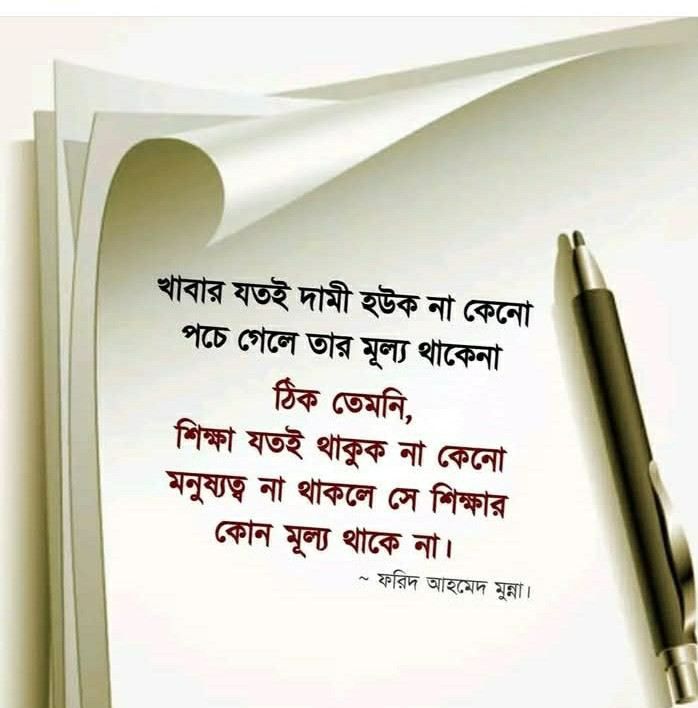 খাবার যতই দামী হউক না কেনো
পচে গেলে তার মূল্য থাকেনা
ঠিক তেমনি,
শিক্ষা যতই থাকুক না কেনো
মনুষ্যত্ব না থাকলে সে শিক্ষার
কোন মূল্য থাকে না।
~ ফরিদ আহমেদ মুন্না।